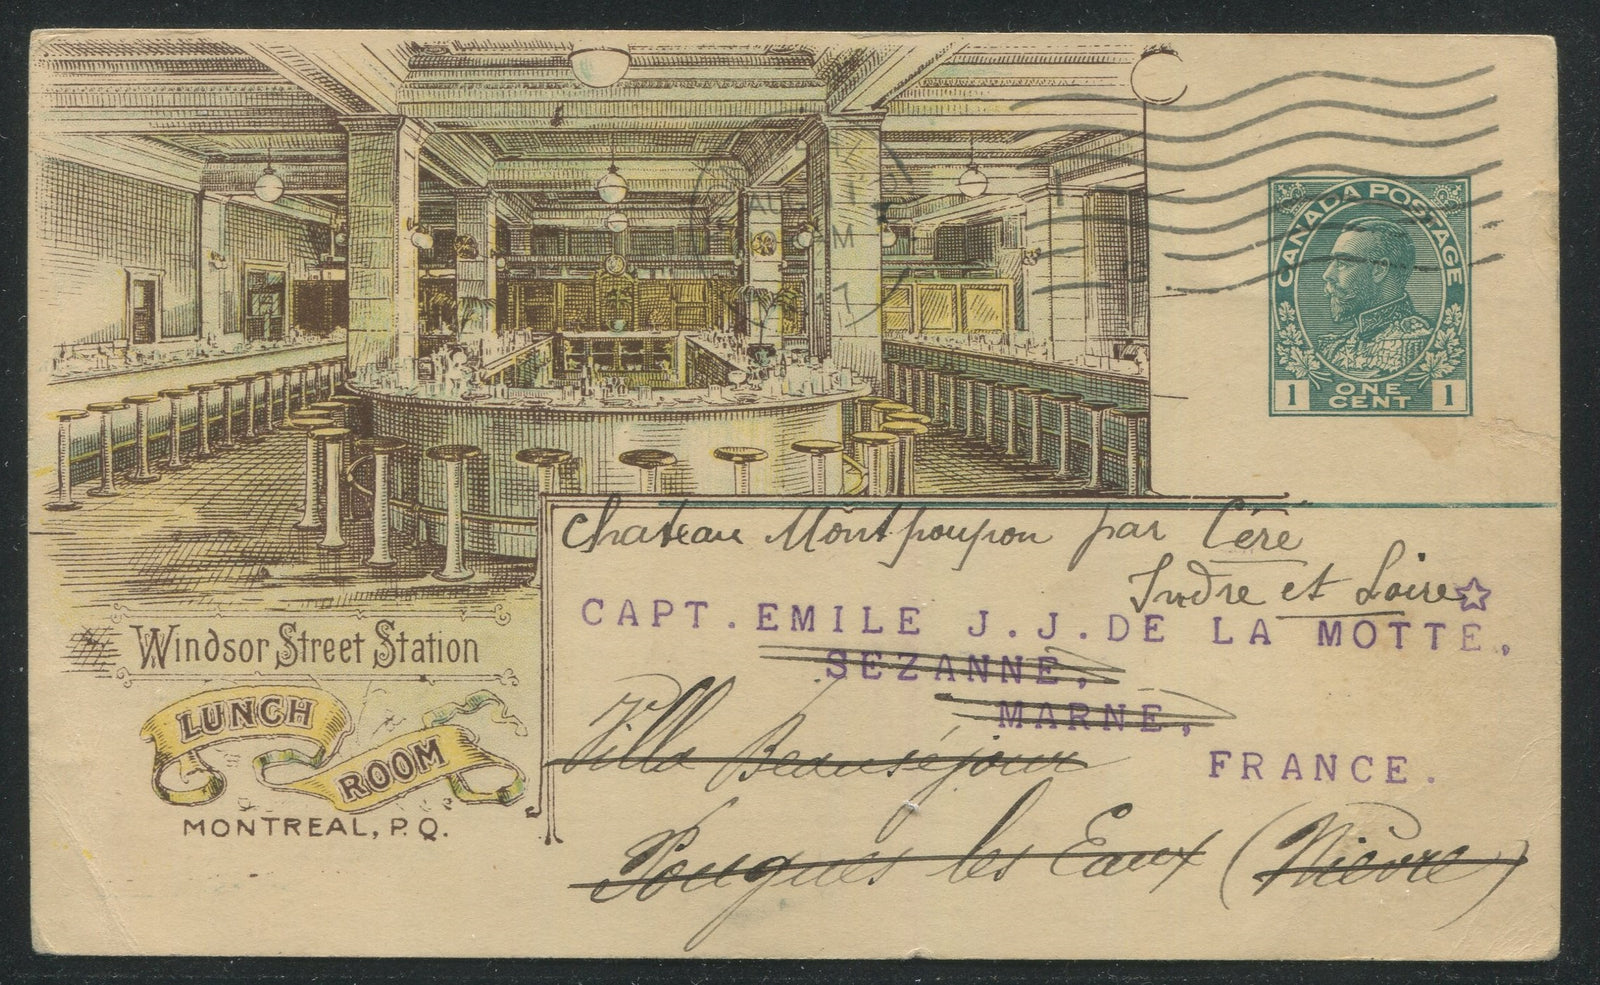 CANADA POSTAGE
1 ONE CENT 1
AM
17
Chateau Montpoupon par Céré
Indre et Loire
CAPT. EMILE J. J. DE LA MOTTE,
SEZANNE,
MARNE,
FRANCE.
Villa Beauséjour
Pougues les Eaux (Nièvre)
Windsor Street Station
LUNCH
ROOM
MONTREAL, P.Q.